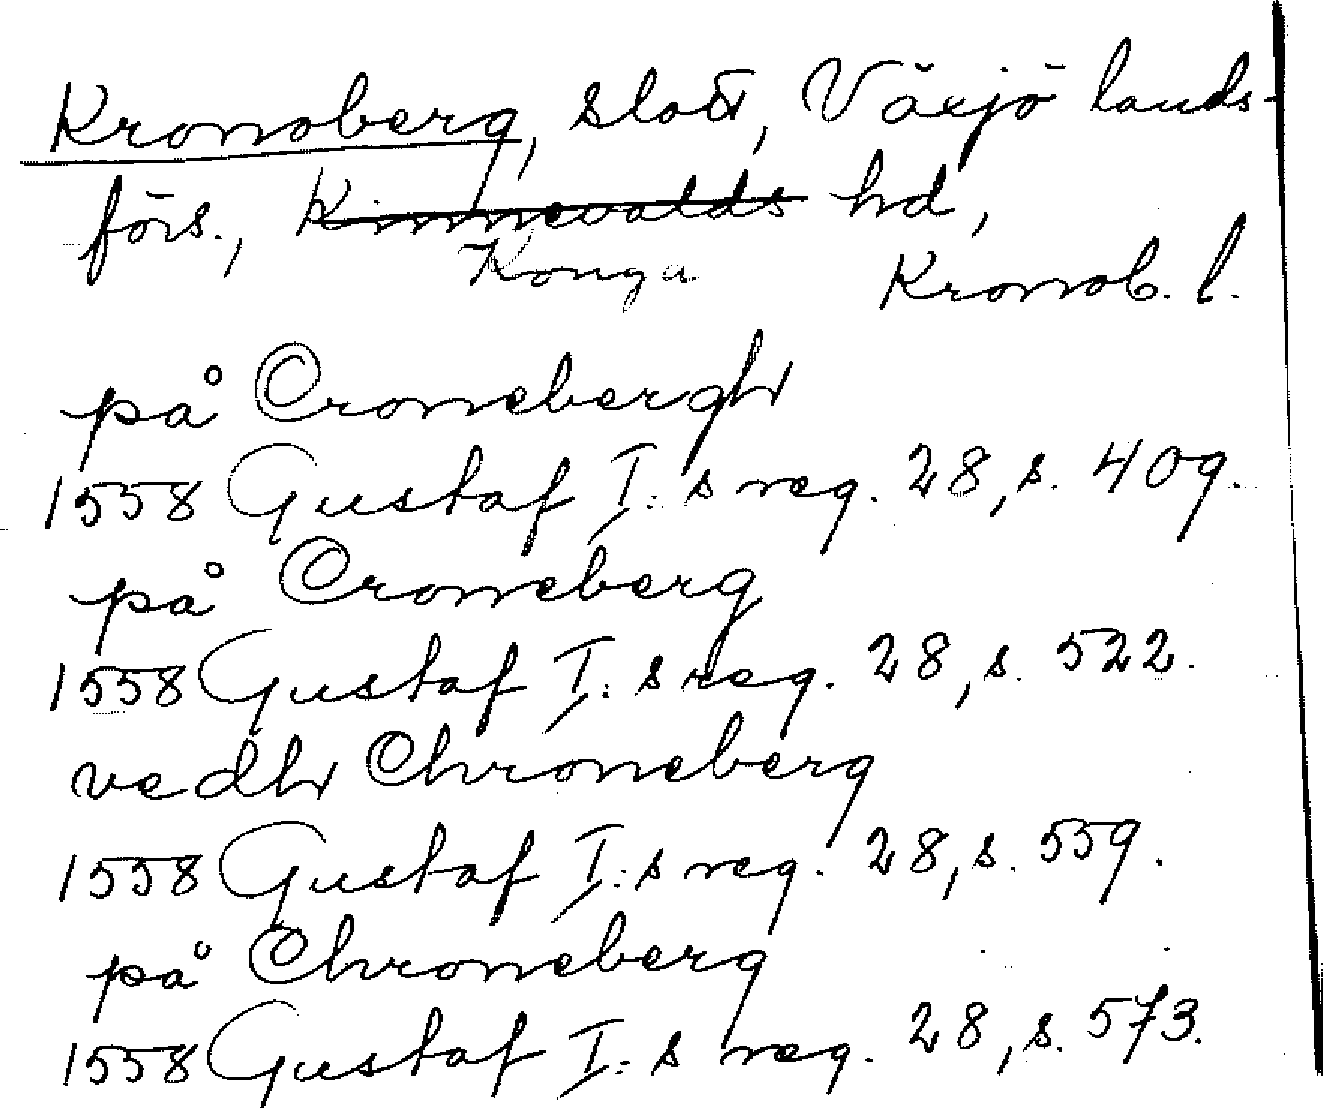 Kronoberg, slott, Växjö lands-
förs., Kinnevalds hd,
Konga Kronob. l.
på Cronebergh
1558 Gustaf I:s reg. 28, s. 409.
på Croneberg
1558 Gustaf I:s reg. 28, s. 522.
vedh Chroneberg
1558 Gustaf I:s reg. 28, s. 559.
på Chroneberg
1558 Gustaf I:s reg. 28, s. 573.